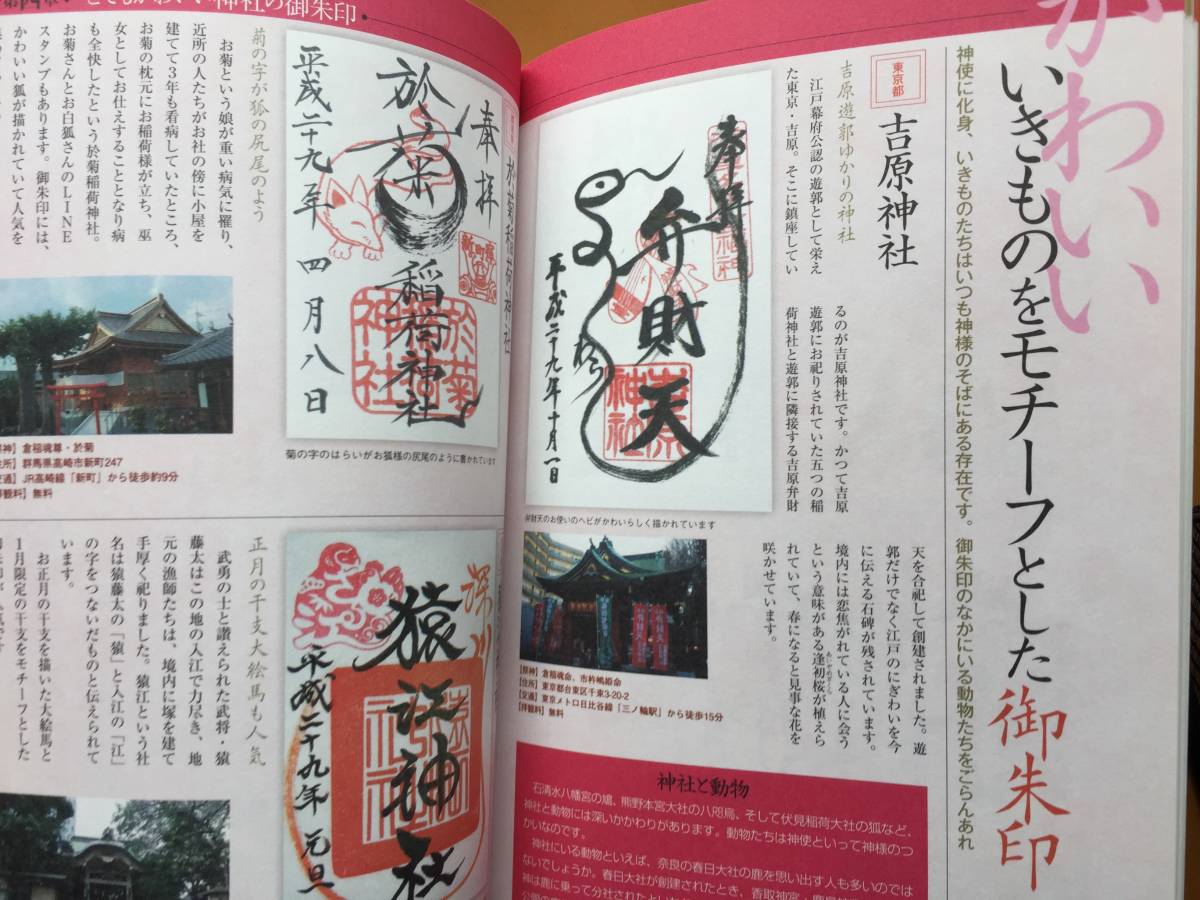 かわいい
いきものをモチーフとした御朱印
神使に化身、いきものたちはいつも神様のそばにある存在です。御朱印のなかにいる動物たちをごらんあれ
東京都
吉原神社
吉原遊郭ゆかりの神社
江戸幕府公認の遊郭として栄え
た東京・吉原。そこに鎮座してい
るのが吉原神社です。かつて吉原
遊郭にお祀りされていた五つの稲
荷神社と遊郭に隣接する吉原弁財
天を合祀して創建されました。遊
郭だけでなく江戸のにぎわいを今
に伝える石碑が残されています。
境内には恋焦がれている人に会う
という意味がある逢初桜が植えら
あいぞめざくら
れていて、春になると見事な花を
咲かせています。
奉拝
弁財天
平成二十九年十月一日
弁財天のお使いのヘビがかわいらしく描かれています
【祭神】倉稲魂命、市杵嶋姫命
【住所】東京都台東区千束3-20-2
【交通】東京メトロ日比谷線「三ノ輪駅」から徒歩15分
【拝観料】無料
神社と動物
石清水八幡宮の鳩、熊野本宮大社の八咫烏、そして伏見稲荷大社の狐など、
神社と動物には深いかかわりがあります。動物たちは神使といって神様のつ
かいなのです。
神社にいる動物といえば、奈良の春日大社の鹿を思い出す人も多いのでは
ないでしょうか。春日大社が創建されたとき、香取神宮・鹿島神
神は鹿に乗って分社されたといな
神社の御朱印
於菊稲荷神社
奉拝
於菊稲荷神社
平成二十九年四月八日
於菊神社
菊の字のはらいがお狐様の尻尾のように書かれています
菊の字が狐の尻尾のよう
お菊という娘が重い病気に罹り、
近所の人たちがお社の傍に小屋を
建てて3年も看病していたところ、
お菊の枕元にお稲荷様が立ち、巫
女としてお仕えすることとなり病
も全快したという於菊稲荷神社。
お菊さんとお白狐さんのLINE
スタンプもあります。御朱印には、
かわいい狐が描かれていて人気を
【祭神】倉稲魂尊・於菊
【住所】群馬県高崎市新町247
【交通】JR高崎線「新町」から徒歩約9分
【拝観料】無料
深川
猿江神社
平成二十九年元旦
正月の干支大絵馬も人気
武勇の士と讃えられた武将・猿
藤太はこの地の入江で力尽き、地
元の漁師たちは、境内に塚を建て
手厚く祀りました。猿江という社
名は猿藤太の「猿」と入江の「江」
の字をつないだものと伝えられて
います。
お正月の干支を描いた大絵馬と
1月限定の干支をモチーフとした